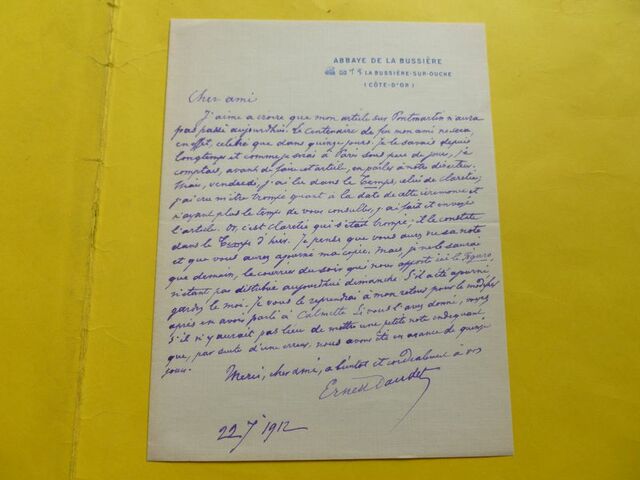 ABBAYE DE LA BUSSIÈRE
LA BUSSIÈRE-SUR-OUCHE
(CÔTE-D'OR)
Cher ami
J'aime à croire que mon article sur Pontmartin n'aura
pas passé aujourd'hui. Le Centenaire de feu mon ami ne sera,
en effet, célébré que dans quinze jours. Je le savais depuis
longtemps et comme je serai à Paris sous peu de jours, je
comptais, avant de faire cet article, en parler à notre directeur.
Mais, vendredi, j'ai lu dans le Temps, celui de Claretie,
j'ai cru m'être trompé quant à la date de cette cérémonie et
n'ayant plus le temps de vous consulter, j'ai fait et envoyé
l'article. Or, c'est Claretie qui s'était trompé; il le constate
dans le Temps d'hier. Je pense que vous aurez vu sa note
et que vous aurez ajourné ma copie. Mais, je ne le saurai
que demain, le courrier du soir qui nous apporte ici le Figaro,
n'étant pas distribué aujourd'hui dimanche. S'il a été ajourné,
gardez le moi. Je vous le reprendrai à mon retour pour le modifier
après en avoir parlé à Calmette. Si vous l'avez donné, voyez
s'il n'y aurait pas lieu de mettre une petite note indiquant,
que, par suite d'une erreur, nous avons été en avance de quinze
jours.
Merci, cher ami, à bientôt et cordialement à vos
Ernest Daudet
22 7 1912